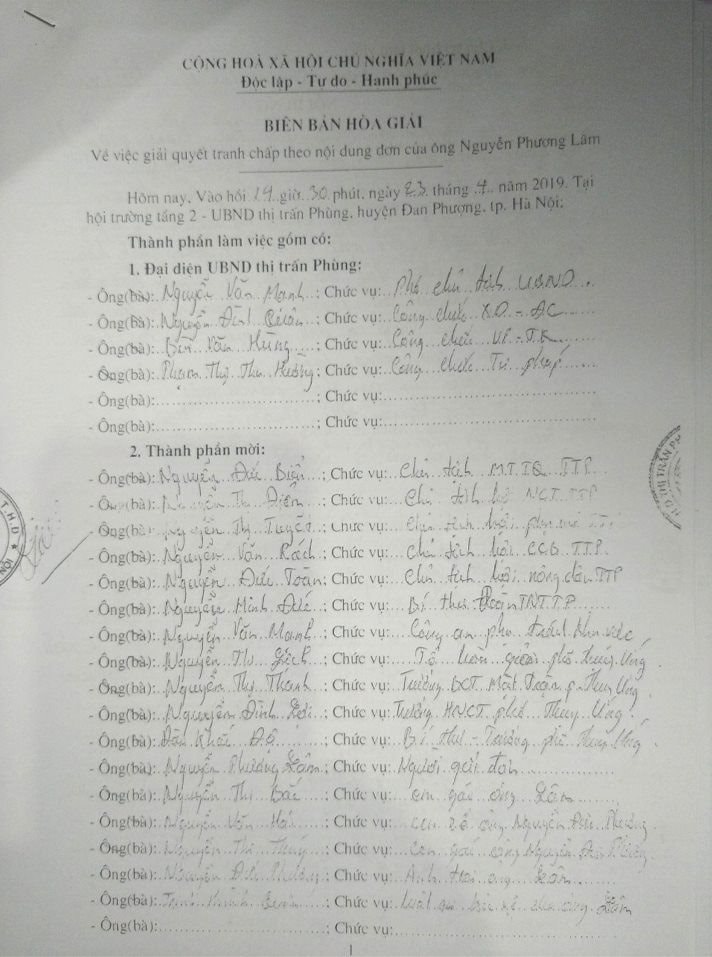 CỘNG HOÀ XÃ HỘI CHỦ NGHĨA VIỆT NAM
Độc lập - Tự do - Hạnh phúc
BIÊN BẢN HÒA GIẢI
Về việc giải quyết tranh chấp theo nội dung đơn của ông Nguyễn Phương Lâm
Hôm nay, Vào hồi 14 giờ 30 phút, ngày 23 tháng 4 năm 2019. Tại
hội trường tầng 2 - UBND thị trấn Phùng, huyện Đan Phượng, tp. Hà Nội;
Thành phần làm việc gồm có:
1. Đại diện UBND thị trấn Phùng:
- Ông(bà): Nguyễn Văn Mạnh; Chức vụ: Phó chủ tịch UBND
- Ông(bà): Nguyễn Đình; Chức vụ: Công chức XD - ĐC
- Ông(bà): Bùi Văn Hùng; Chức vụ: Công chức VP - TK
- Ông(bà): Phạm Thị Thu Hường; Chức vụ: Công chức Tư pháp
- Ông(bà):; Chức vụ:
- Ông(bà):; Chức vụ:
2. Thành phần mời:
- Ông(bà): Nguyễn Đức; Chức vụ: Chủ tịch MTTQ TTP
- Ông(bà): Nguyễn Thị Điểm; Chức vụ: Chủ tịch hội NCT TTP
- Ông(bà): Nguyễn Thị Tuyết; Chức vụ: Chủ tịch hội phụ nữ TTP
- Ông(bà): Nguyễn Văn; Chức vụ: Chủ tịch hội CCB TTP
- Ông(bà): Nguyễn Đức Toàn; Chức vụ: Chủ tịch hội nông dân TTP
- Ông(bà): Nguyễn Minh Đức; Chức vụ: Bí thư Đoàn TN TTP
- Ông(bà): Nguyễn Văn Mạnh; Chức vụ: Công an phụ trách khu vực
- Ông(bà): Nguyễn Thị; Chức vụ: Tổ phố Thụy Ứng
- Ông(bà): Nguyễn Thị Thanh; Chức vụ: Trưởng BCT Mặt Trận p. Thụy Ứng
- Ông(bà): Nguyễn Đình; Chức vụ: Trưởng HNCT phố Thụy Ứng
- Ông(bà): Khắc; Chức vụ: Bí thư - Trưởng phố Thụy Ứng
- Ông(bà): Nguyễn Phương Lâm; Chức vụ: Người gửi đơn
- Ông(bà): Nguyễn Thị; Chức vụ: em gái ông Lâm
- Ông(bà): Nguyễn Văn; Chức vụ: ông Nguyễn Đức Phương
- Ông(bà): Nguyễn Thị; Chức vụ: con gái ông Nguyễn Đức Phương
- Ông(bà): Nguyễn Đức Phương; Chức vụ: Anh trai ông Lâm
- Ông(bà):; Chức vụ: luật sư bảo vệ cho ông Lâm
- Ông(bà):; Chức vụ:
1